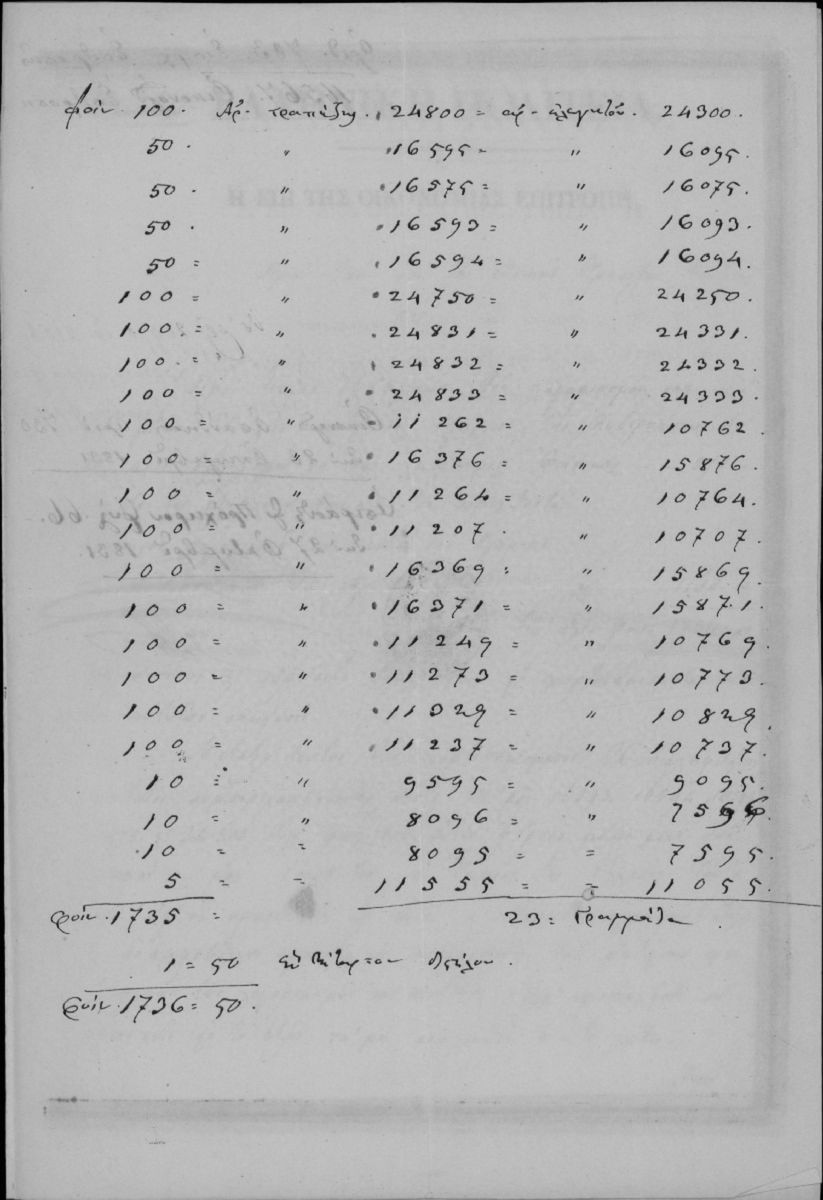 φοίν. 100. Ἀρ. τραπέζης. 24800 = ἀρ. ἐλεγκτοῦ. 24300.
50. " 16595 = " 16095.
50. " 16575 = " 16075.
50. " 16593 = " 16093.
50 = " 16594 = " 16094.
100 = " 24750 = " 24250.
100 = " 24831 = " 24331.
100. = " 24832 = " 24332.
100 = " 24833 = " 24333.
100 = " 11262 = " 10762.
100 = " 16376 = " 15876.
100 = " 11264 = " 10764.
100 = " 11207. " 10707.
100 = " 16369 = " 15869.
100 = " 16371 = " 15871.
100 = " 11249 = " 10769.
100 = " 11273 = " 10773.
100 = " 11329 = " 10829.
100 = " 11237 = " 10737.
10 = " 9595 = " 9095.
10 = " 8096 = " 7596.
10 = = 8095 = = 7595.
5 = = 11555 = = 11055.
φοίν. 1735 = 23 = Γραμμάτια.
1 = 50
φοίν. 1736 = 50.